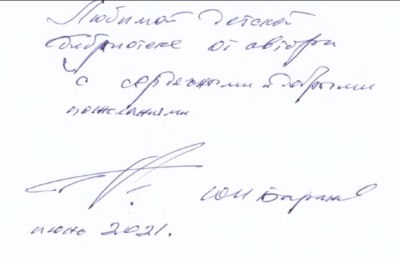 Любимой детской
библиотеке от автора
с сердечными и добрыми
пожеланиями
Ю И Баранов
июнь 2021.